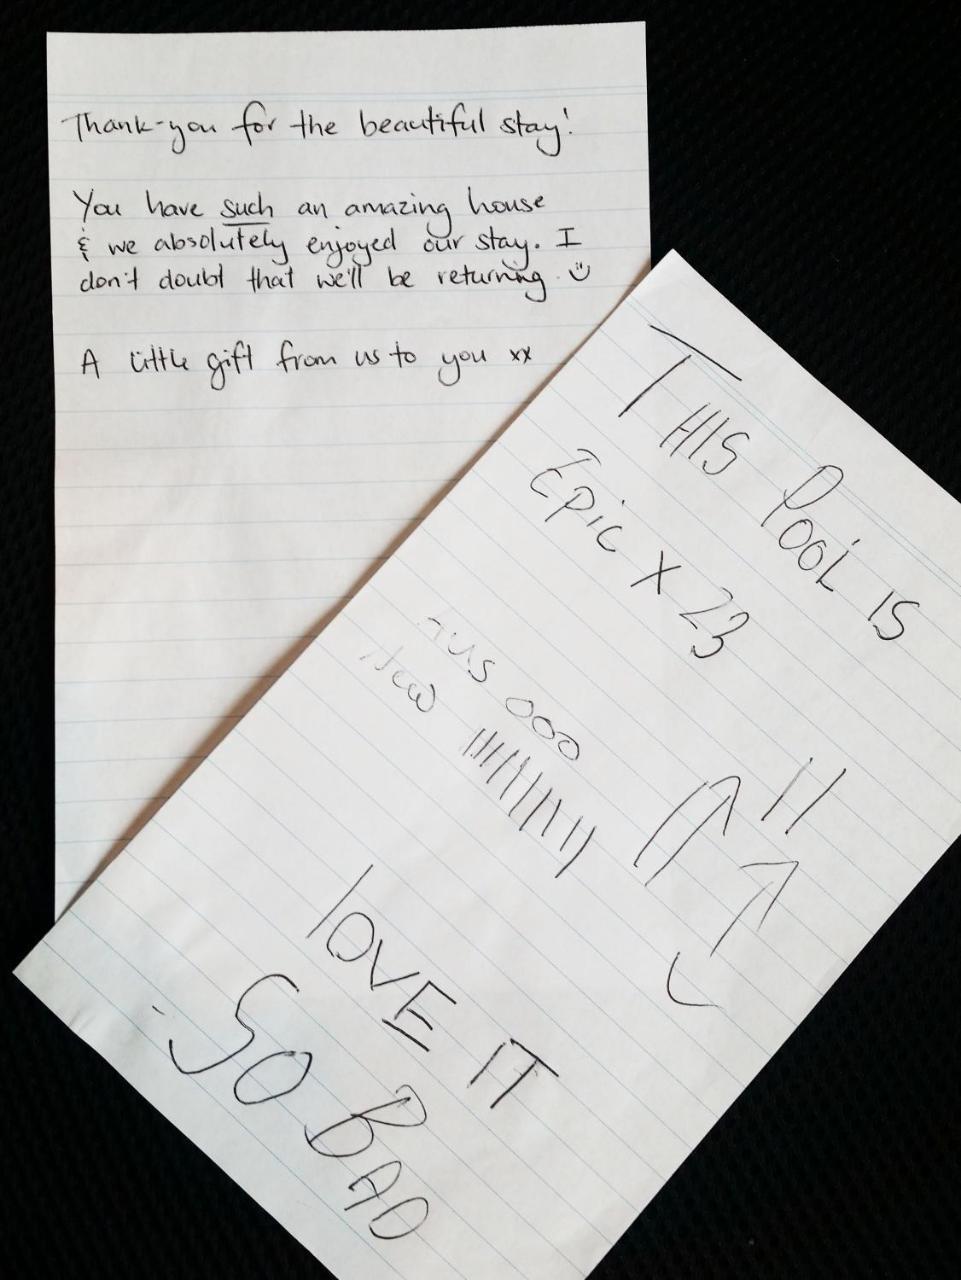 Thank-you for the beautiful stay!
You have such an amazing house
& we absolutely enjoyed our stay. I
don't doubt that we'll be returning.
A little gift from us to you xx
THIS POOL IS
Epic X 23
LOVE IT
SO BAD